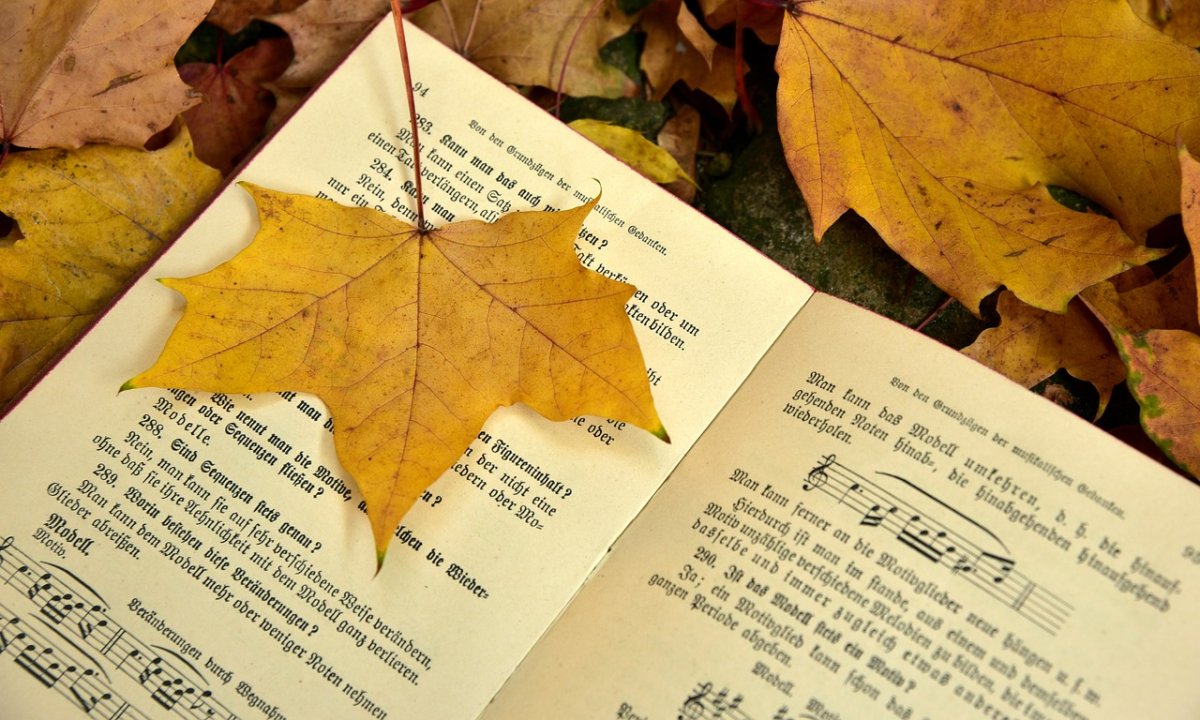 94
Von den Grundzügen der musikalischen Gedanken.
283. Kann man das auch mi
tzen?
Man kann einen Satz
Takt verkürzen oder um
einen Takt verlängern, all
akten bilden.
284. Kann man
Nein, denn
nur ein T
Figureninhalt?
der nicht eine
iedern oder Mo=
Wie nennt man die Motive, a
elchen die Wieder=
ungen oder Sequenzen fließen?
Modelle.
288. Sind Sequenzen stets genau?
Nein, man kann sie auf sehr verschiedene Weise verändern,
ohne daß sie ihre Aehnlichkeit mit dem Modell ganz verlieren.
289. Worin bestehen diese Veränderungen?
Man kann dem Modell mehr oder weniger Noten nehmen
Glieder abreißen.
Modell.
Motiv.
Veränderungen durch Wegnahm
Von den Grundzügen der musikalischen Gedanken.
Man kann das Modell umkehren, d. h. die hinauf=
gehenden Noten hinab=, die hinabgehenden hinaufgehend
wiederholen.
Man kann ferner an die Motivglieder neue hängen u. s. w.
Hierdurch ist man im stande, aus einem und demselben
Motiv unzählige verschiedene Melodien zu bilden, die
dasselbe und immer zugleich etwas anderes
290. Ist das Modell stets ein Motiv?
Ja; ein Motivglied kann schon das
ganzen Periode abgeben.
Modell.
Motiv